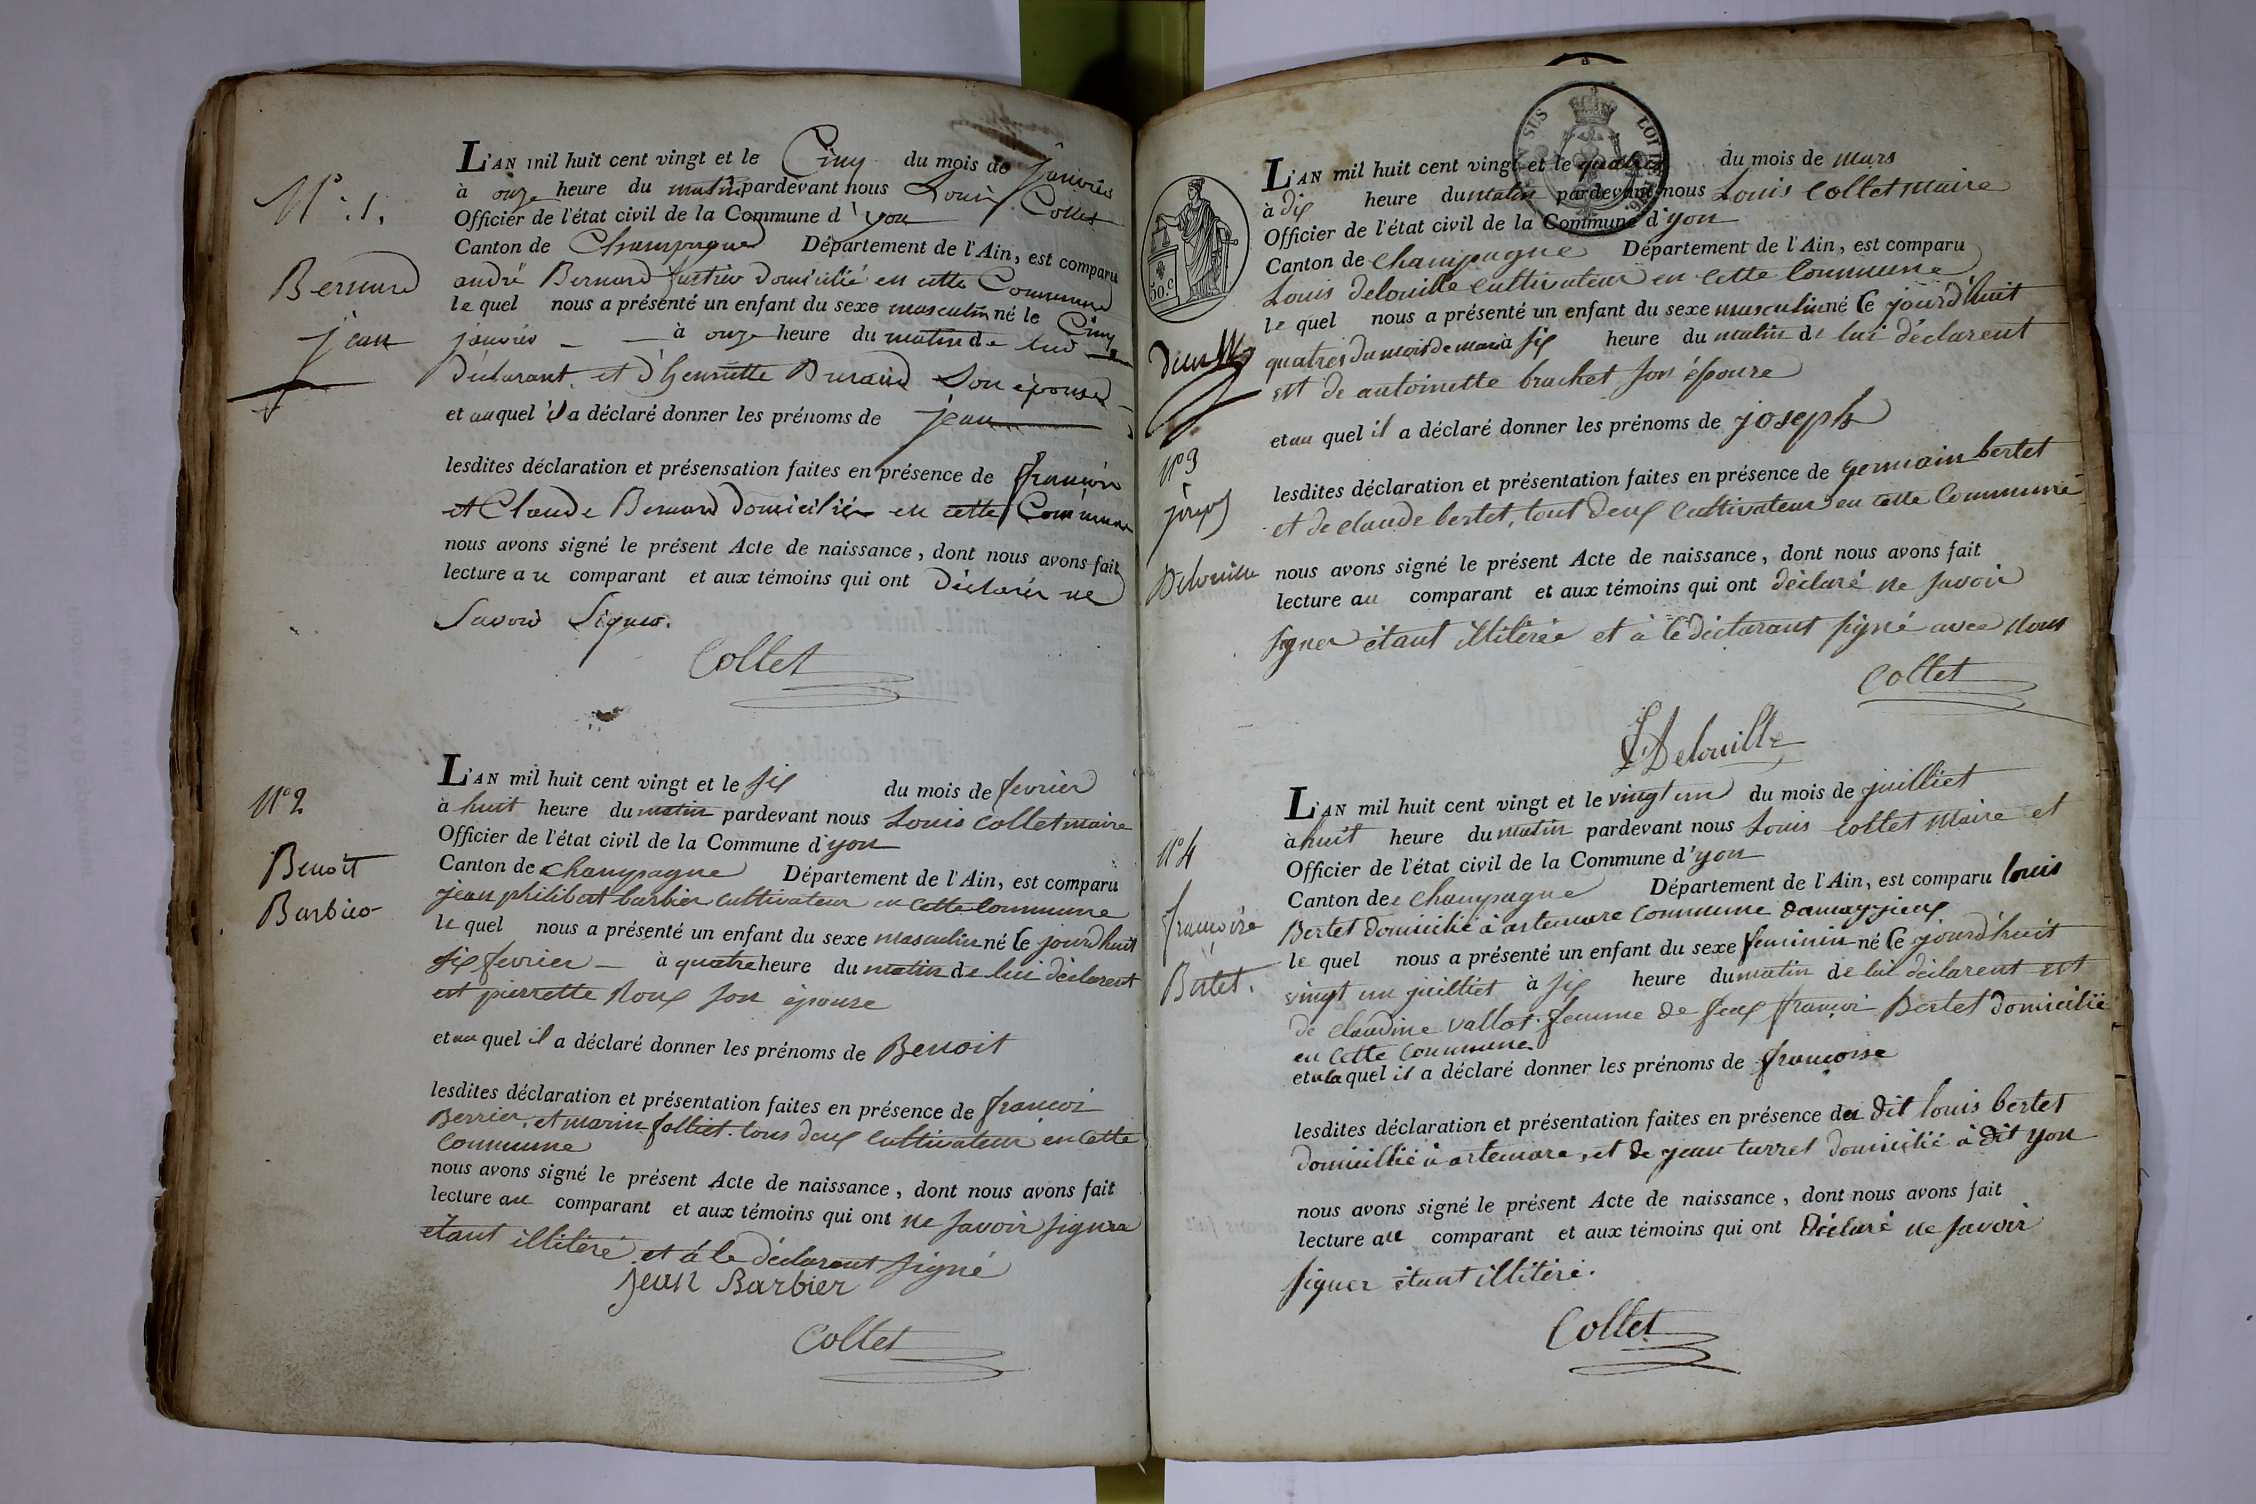 N.° 1.
Bernard
jean
L'AN mil huit cent vingt et le Cinq du mois de Janvier
à onze heure du matin pardevant nous Louis Collet
Officier de l'état civil de la Commune d'yon
Canton de Champagne Département de l'Ain, est comparu
andré Bernard domicilié en cette Commune
le quel nous a présenté un enfant du sexe masculin né le Cinq
janvier à onze heure du matin de lui
Déclarant et d'henriette Buraud Son épouse
et auquel il a déclaré donner les prénoms de jean
lesdites déclaration et présensation faites en présence de françois
et Claude Bernard domiciliés en cette Commune
nous avons signé le présent Acte de naissance, dont nous avons fait
lecture au comparant et aux témoins qui ont Déclarés ne
Savoir Signer.
Collet
N° 2
Benoit
Barbier
L'AN mil huit cent vingt et le six du mois de fevrier
à huit heure du matin pardevant nous Louis Collet maire
Officier de l'état civil de la Commune d'yon
Canton de Champagne Département de l'Ain, est comparu
jean philibert barbier cultivateur en cette Commune
le quel nous a présenté un enfant du sexe masculin né le jourd'huit
six fevrier à quatre heure du matin de lui déclarent
est pierrette Roux son épouse
et au quel il a déclaré donner les prénoms de Benoit
lesdites déclaration et présentation faites en présence de françoi
Berrier, et marin folliet. tous deux Cultivateur en Cette
Commune
nous avons signé le présent Acte de naissance, dont nous avons fait
lecture au comparant et aux témoins qui ont ne savoir signer
étant illitéré et à le déclarant signé
jean Barbier
Collet
SUS
30.c
N° 3
joseph
Delouille
L'AN mil huit cent vingt et le quatres du mois de mars
à dix heure du matin pardevant nous Louis Collet Maire
Officier de l'état civil de la Commune d'yon
Canton de Champagne Département de l'Ain, est comparu
Louis delouille Cultivateur en Cette Commune
le quel nous a présenté un enfant du sexe masculin né le jourd'huit
quatres du mois de mars à six heure du matin de lui déclarent
est de antoinette brachet son épouse
et au quel il a déclaré donner les prénoms de joseph
lesdites déclaration et présentation faites en présence de germain bertet
et de claude bertet, tout deux Cultivateur en Cette Commune
nous avons signé le présent Acte de naissance, dont nous avons fait
lecture au comparant et aux témoins qui ont déclaré ne savoir
signer étant illitérée et à le déclarant signé avec Nous
Collet
Delouille
N° 4
françoise
Bertet.
L'AN mil huit cent vingt et le vingt un du mois de juilliet
à huit heure du matin pardevant nous Louis Collet Maire et
Officier de l'état civil de la Commune d'yon
Canton de Champagne Département de l'Ain, est comparu louis
Bertet domicilié à artemare Commune damayzieux
le quel nous a présenté un enfant du sexe feminin né le jourd'huit
vingt un juilliet à six heure du matin de lui déclarent est
de claudine vallot femme de feux françoi Bertet domicilié
en Cette Commune
et a la quel il a déclaré donner les prénoms de françoise
lesdites déclaration et présentation faites en présence du dit louis bertet
domicillié à artemare, et de jean turret domicilié à dit yon
nous avons signé le présent Acte de naissance, dont nous avons fait
lecture au comparant et aux témoins qui ont Déclaré ne savoir
signer étant illitéré.
Collet